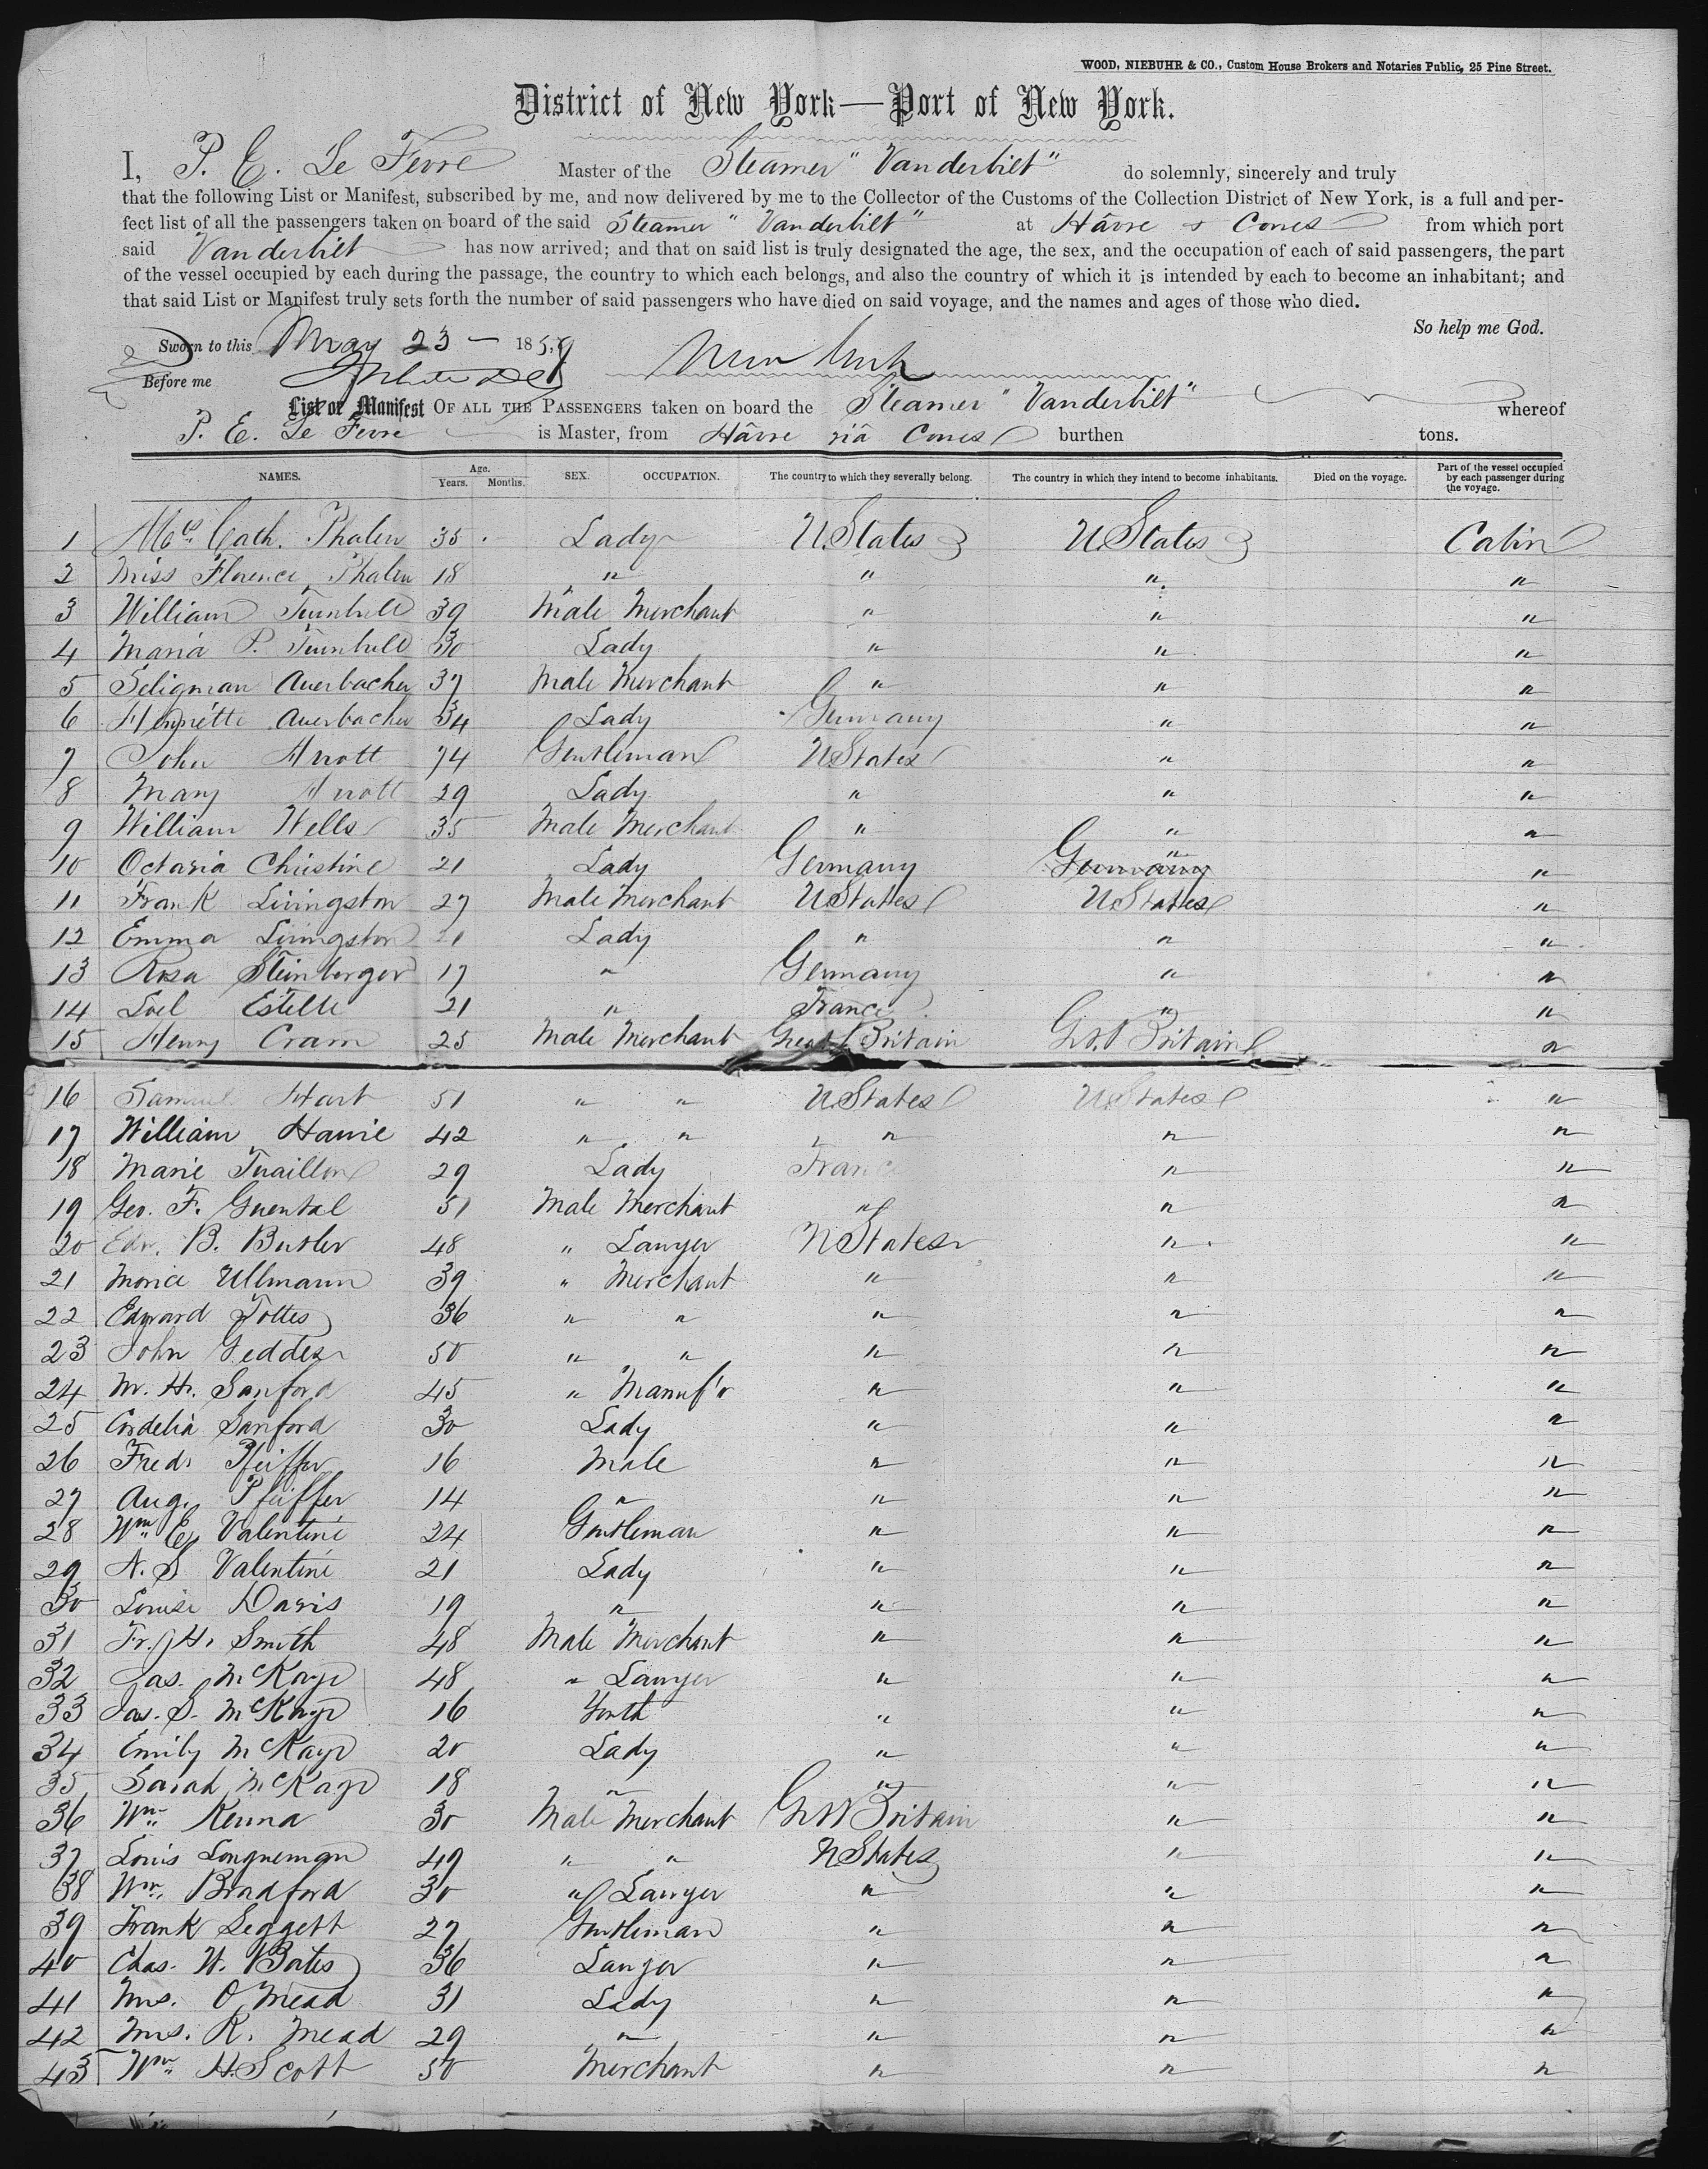 WOOD, NIEBUHR & CO., Custom House Brokers and Notaries Public, 25 Pine Street.
District of New York—Port of New York.
I, P. E. Le Fevre Master of the Steamer "Vanderbilt" do solemnly, sincerely and truly
that the following List or Manifest, subscribed by me, and now delivered by me to the Collector of the Customs of the Collection District of New York, is a full and per-
fect list of all the passengers taken on board of the said Steamer "Vanderbilt" at Hâvre & Cowes from which port
said Vanderbilt has now arrived; and that on said list is truly designated the age, the sex, and the occupation of each of said passengers, the part
of the vessel occupied by each during the passage, the country to which each belongs, and also the country of which it is intended by each to become an inhabitant; and
that said List or Manifest truly sets forth the number of said passengers who have died on said voyage, and the names and ages of those who died.
So help me God.
Sworn to this May 23 — 1859
Before me
List or Manifest OF ALL THE PASSENGERS taken on board the Steamer "Vanderbilt" whereof
P. E. Le Fevre is Master, from Hâvre viâ Cowes burthen tons.
NAMES. Age. Years. Months. SEX. OCCUPATION. The country to which they severally belong. The country in which they intend to become inhabitants. Died on the voyage. Part of the vessel occupied by each passenger during the voyage.
1 Cath. Phalen 35 Lady U. States U. States Cabin
2 Miss Florence Phalen 18 " " " "
3 William Turnbull 39 Male Merchant " " "
4 Maria P. Turnbull 30 Lady " " "
5 Seligman Auerbacher 37 Male Merchant " " "
6 Henriette Auerbacher 34 Lady Germany " "
7 John Arnott 74 Gentleman U States " "
8 Mary Arnott 29 Lady " " "
9 William Wells 35 Male Merchant " " "
10 Octavia Christine 21 Lady Germany Germany " "
11 Frank Livingston 27 Male Merchant U States U. States "
12 Emma Livingston 21 Lady " " "
13 Rosa Steinberger 17 " Germany " "
14 Estelle 21 " France " "
15 Henry Cram 25 Male Merchant Great Britain Gt. Britain "
16 Samuel Hart 51 " " U. States U. States "
17 William 42 " " " " "
18 Marie Tuaillon 29 Lady France " "
19 Geo. F. Guental 51 Male Merchant " " "
20 Edw. B. Butler 48 " Lawyer U States " "
21 Morice Ullmann 39 " Merchant " " "
22 Edward 36 " " " " "
23 John Geddes 50 " " " " "
24 M. H. Sanford 45 " Manuf'r " " "
25 Cordelia Sanford 30 Lady " " "
26 Fred. Pfeiffer 16 Male " " "
27 Aug. Pfeiffer 14 " " " "
28 Wm E. Valentine 24 Gentleman " " "
29 N. S Valentine 21 Lady " " "
30 Louise Davis 19 " " " "
31 Fr. H. Smith 48 Male Merchant " " "
32 Jas. McKaye 48 " Lawyer " " "
33 Jas. S. McKaye 16 Youth " " "
34 Emily McKaye 20 Lady " " "
35 Sarah McKaye 18 " " " "
36 Wm. Kenna 30 Male Merchant Gt Britain " "
37 Louis Longueman 49 " " U States " "
38 Wm. Bradford 30 " Lawyer " " "
39 Frank Leggett 27 Gentleman " " "
40 Chas. W. Bates 36 Lawyer " " "
41 Mrs. O Mead 31 Lady " " "
42 Mrs. R. Mead 29 " " " "
43 Wm H. Scott 50 Merchant " " "